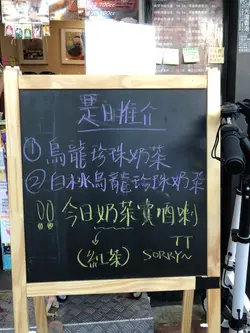 是日推介
① 烏龍珍珠奶茶
② 白桃烏龍珍珠奶茶
!! 今日奶茶賣晒喇
(紅茶)
TT
SORRY~